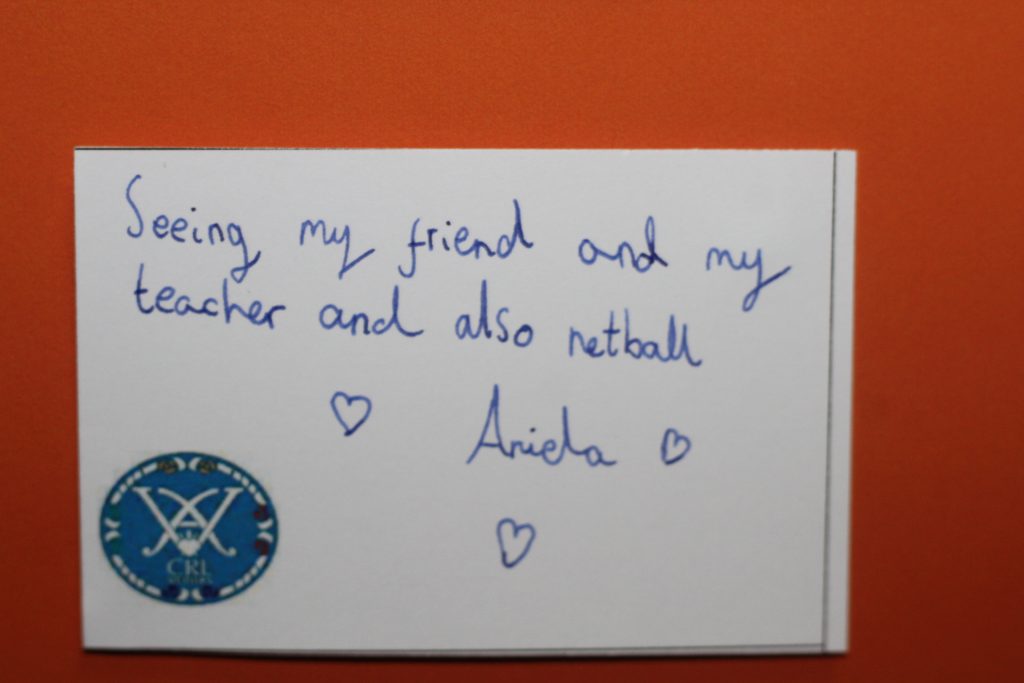 Seeing my friend and my
teacher and also netball
Aniela
CRL